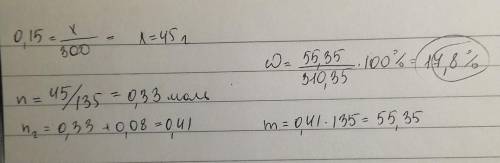 0,15 = x/300 = x=45 г
ω = 55,35/310,35 · 100% = 17,8%
n = 45/135 = 0,33 моль
n₂ = 0,33 + 0,08 = 0,41
m = 0,41 · 135 = 55,35